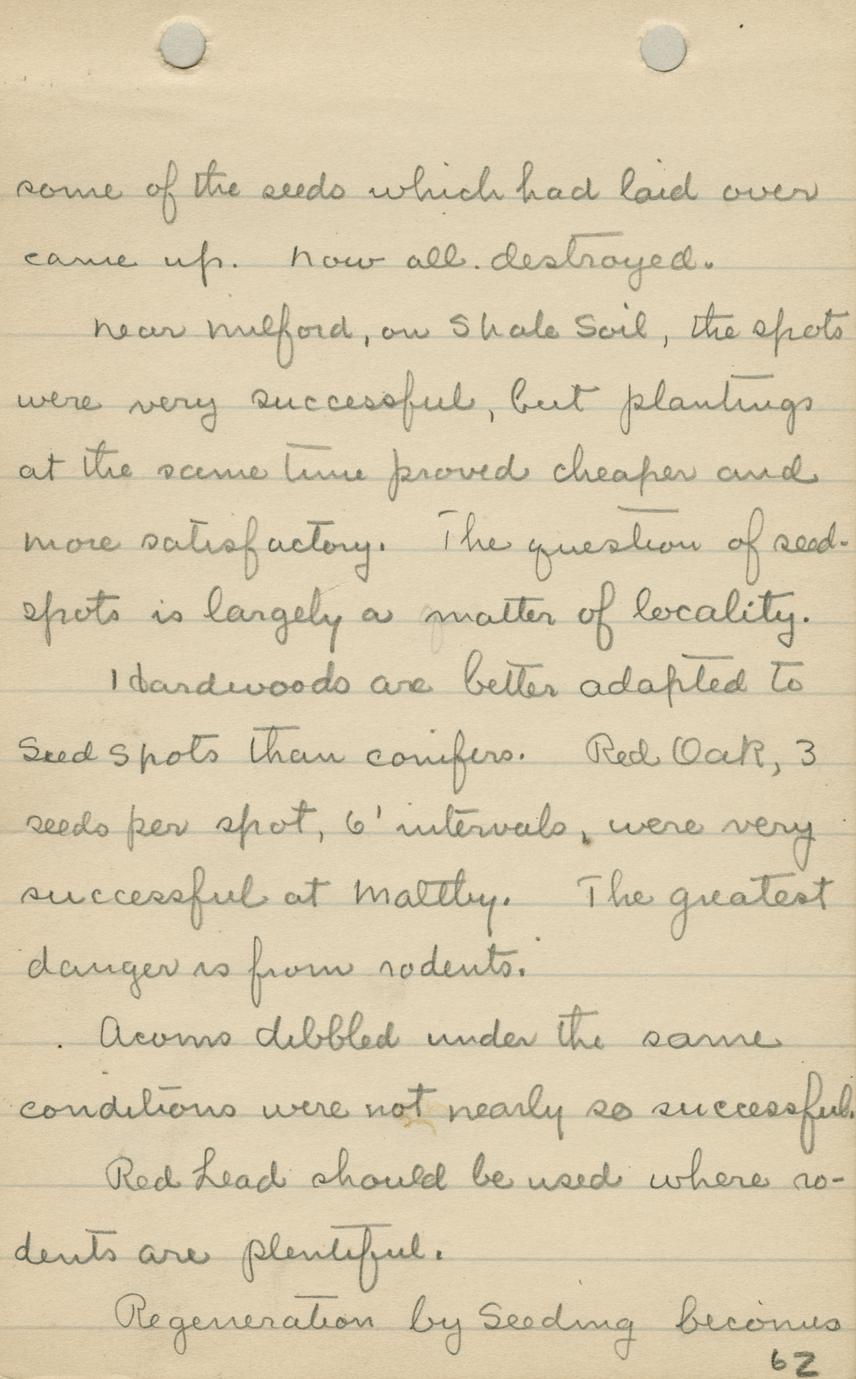 some of the seeds which had laid over
came up. Now all destroyed.
Near Milford, on Shale Soil, the spots
were very successful, but plantings
at the same time proved cheaper and
more satisfactory. The question of seed-
spots is largely a matter of locality.
Hardwoods are better adapted to
Seed Spots than conifers. Red Oak, 3
seeds per spot, 6' intervals, were very
successful at Maltby. The greatest
danger is from rodents.
Acorns dibbled under the same
conditions were not nearly so successful.
Red Lead should be used where ro-
dents are plentiful.
Regeneration by Seeding becomes
62